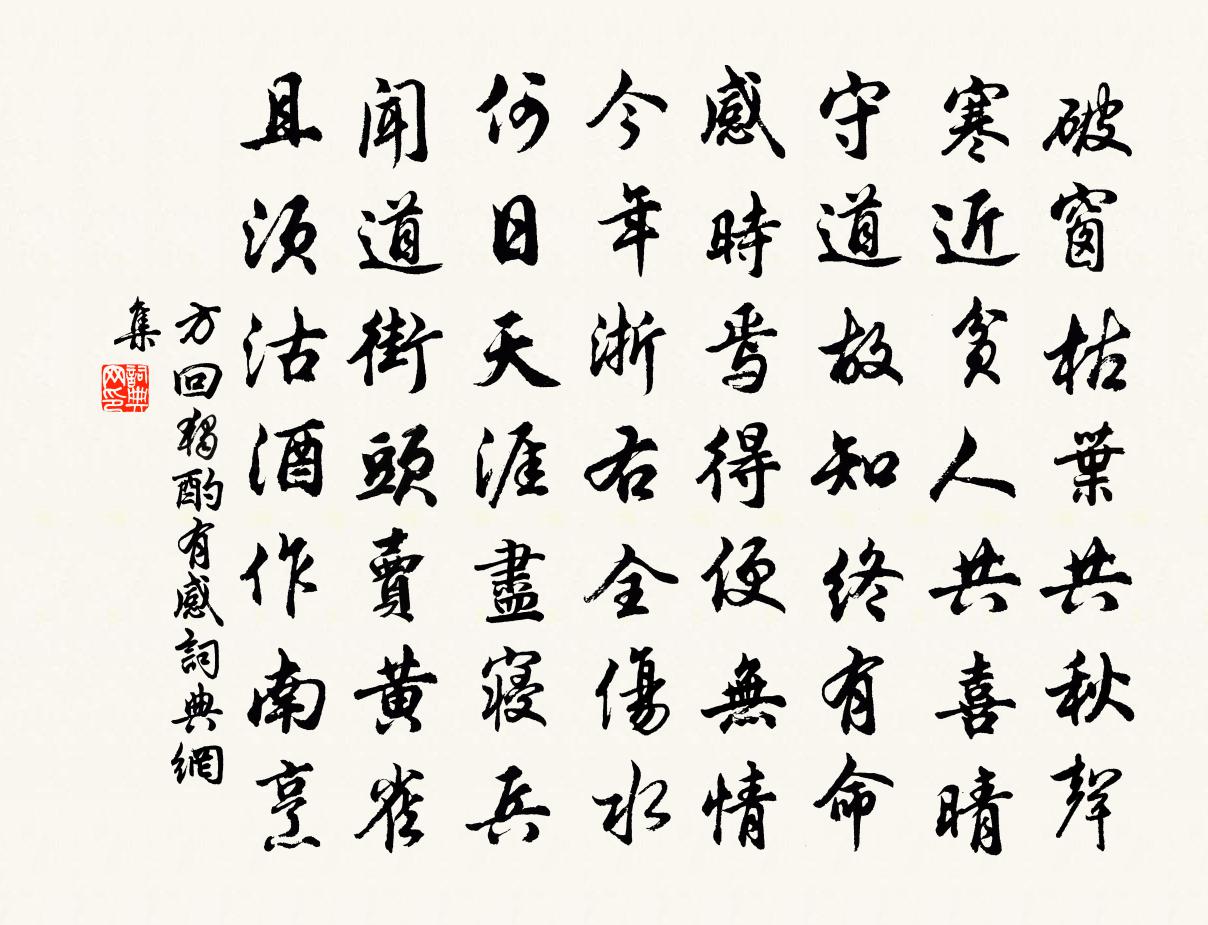 破窗枯葉共秋聲
寒近貧人共喜晴
守道故知終有命
感時焉得便無情
今年浙右全傷水
何日天涯盡寢兵
聞道街頭賣黃雀
且須沽酒作南烹
方回獨酌有感詞典網
集
詞典
网印